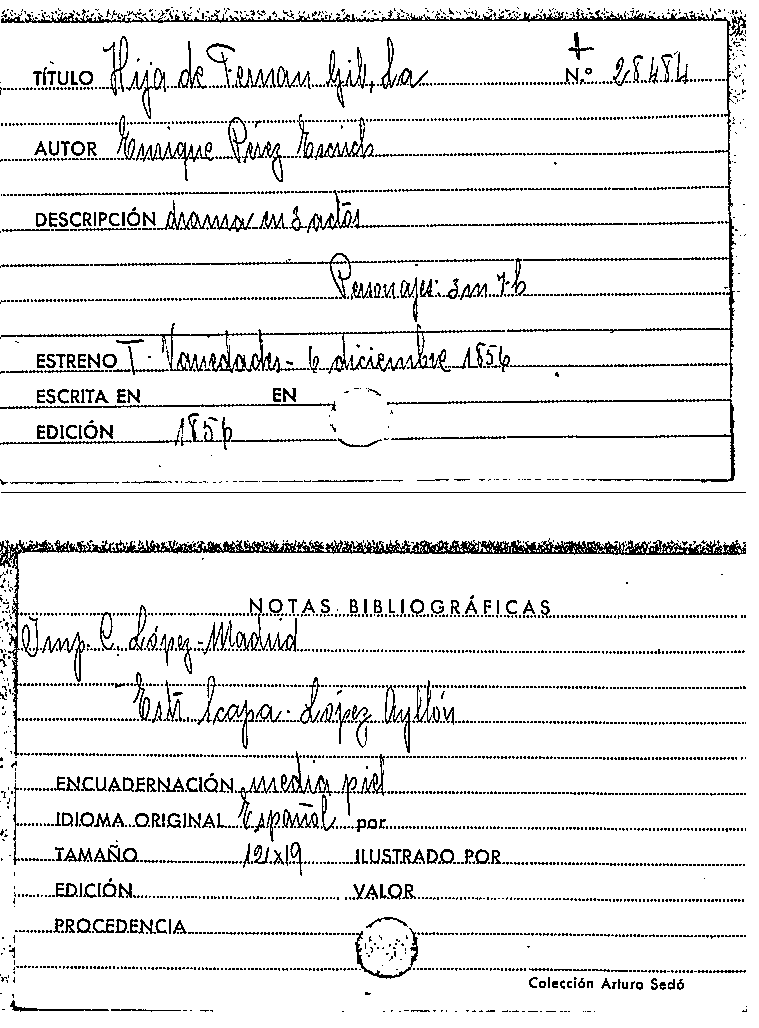 +
TÍTULO Hija de Fernan Gil, La N.º 28484
AUTOR Enrique Pérez Escrich
DESCRIPCIÓN drama en 3 actos
Personajes: 3m 7h
ESTRENO T. Variedades - 6 diciembre 1856
ESCRITA EN EN
EDICIÓN 1856
NOTAS BIBLIOGRÁFICAS
Imp. C. López - Madrid
Estr. Scapa - López Ayllón
ENCUADERNACIÓN media piel
IDIOMA ORIGINAL Español por
TAMAÑO 12x19 ILUSTRADO POR
EDICIÓN VALOR
PROCEDENCIA
Colección Arturo Sedó